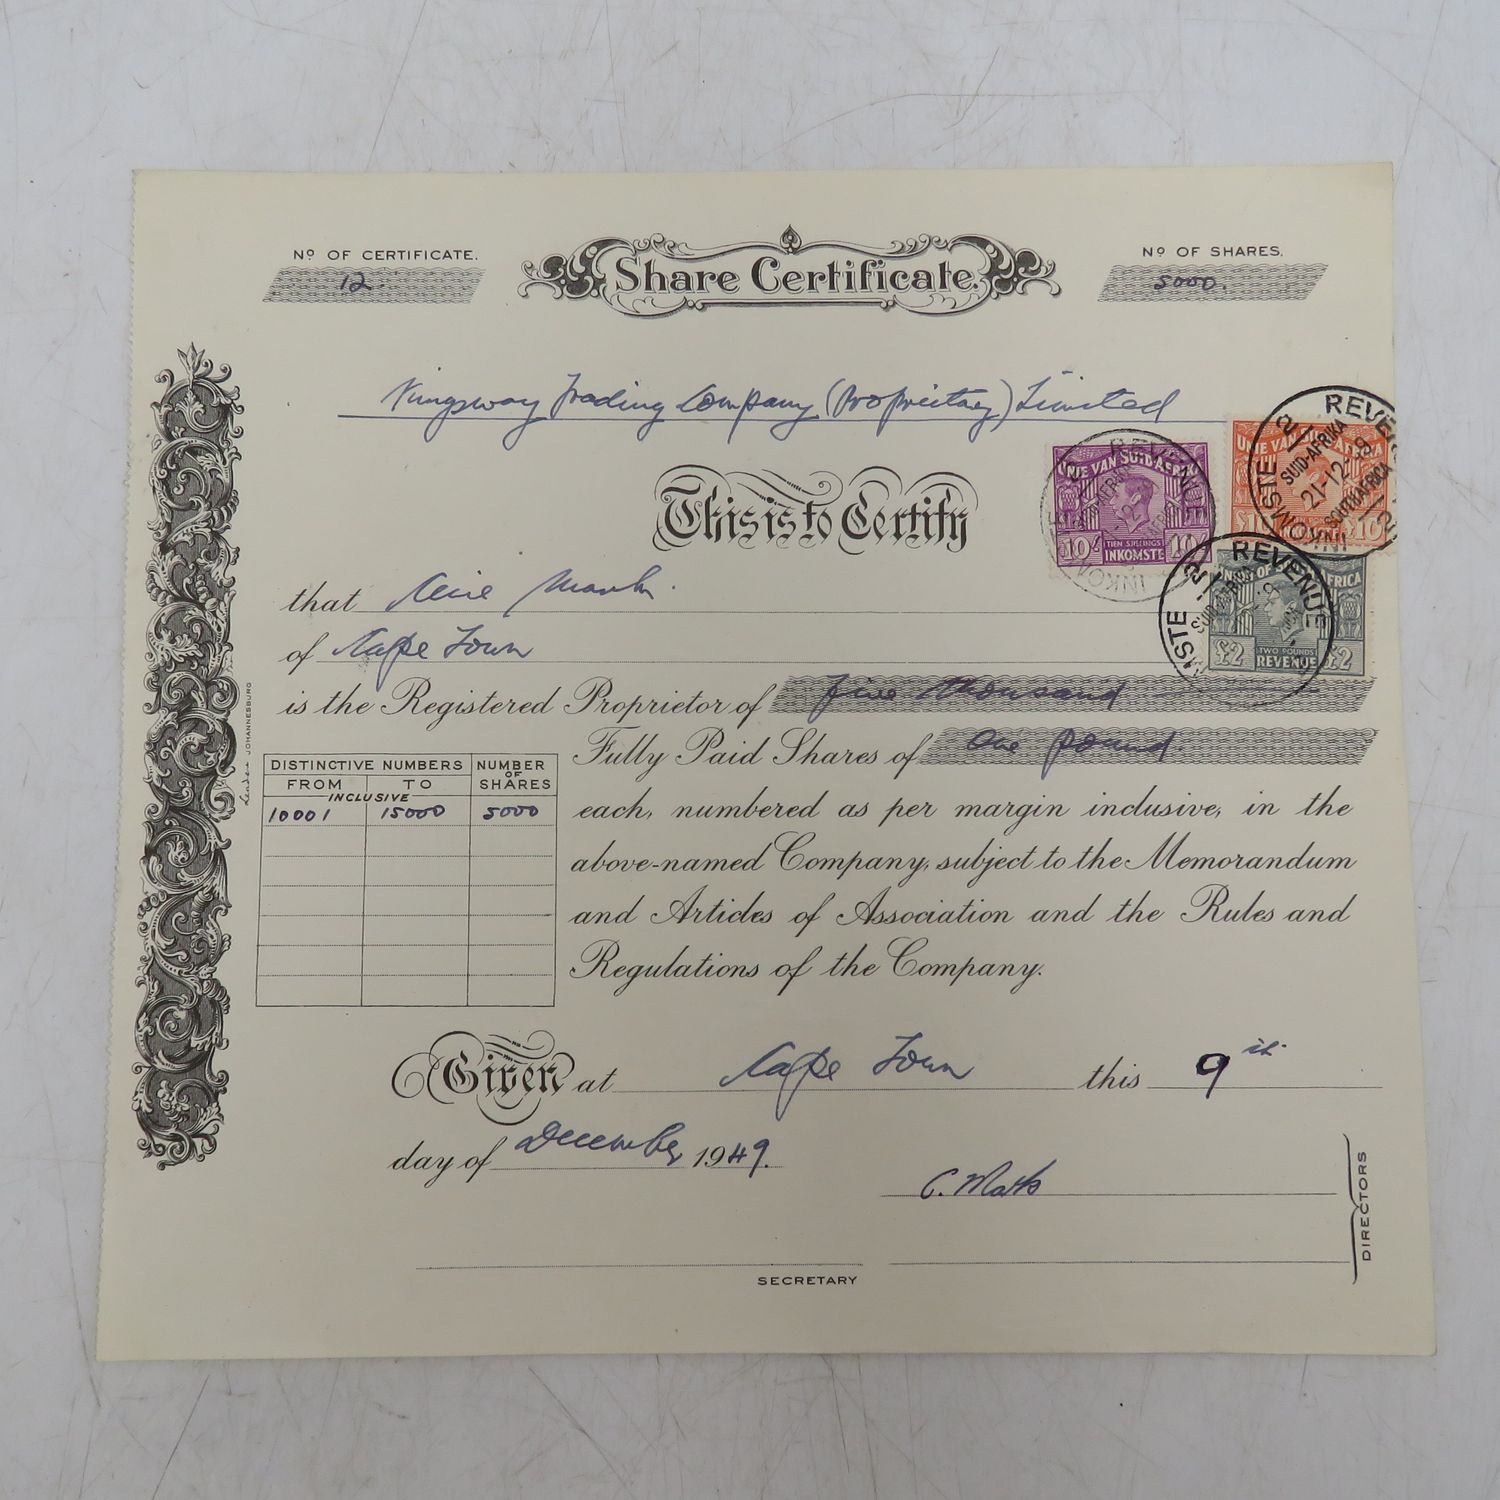 Nº OF CERTIFICATE.
12.
Share Certificate.
Nº OF SHARES.
5000.
Kingsway Trading Company (Proprietary) Limited
This is to Certify
that
of Cape Town
is the Registered Proprietor of five thousand
Fully Paid Shares of One pound.
each, numbered as per margin inclusive, in the
above-named Company, subject to the Memorandum
and Articles of Association and the Rules and
Regulations of the Company.
DISTINCTIVE NUMBERS
NUMBER OF SHARES
FROM TO
INCLUSIVE
10001 15000 5000
JOHANNESBURG
Given at Cape Town this 9th
day of December 1949.
C. Marks
DIRECTORS
SECRETARY
UNIE VAN SUID-AFRIKA
10/- TIEN SJIELINGS 10/-
INKOMSTE
REVENUE
INKOMSTE
UNIE VAN SUID-AFRIKA
£10 £10
REVENUE
SUID-AFRIKA
21-12-49
SOUTH AFRICA
INKOMSTE
2
2
UNION OF SOUTH AFRICA
£2 TWO POUNDS £2
REVENUE
REVENUE